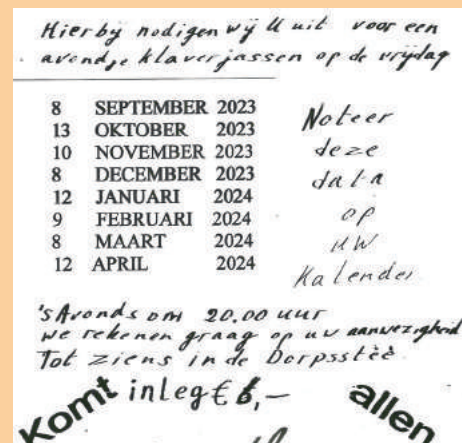 Hierbij nodigen wij U uit voor een
avondje klaverjassen op de vrijdag
8 SEPTEMBER 2023
13 OKTOBER 2023
10 NOVEMBER 2023
8 DECEMBER 2023
12 JANUARI 2024
9 FEBRUARI 2024
8 MAART 2024
12 APRIL 2024
Noteer
deze
data
op
uw
Kalender
's Avonds om 20.00 uur
we rekenen graag op uw aanwezigheid
Tot ziens in de Dorpsstéé
Komt inleg € 6,- allen